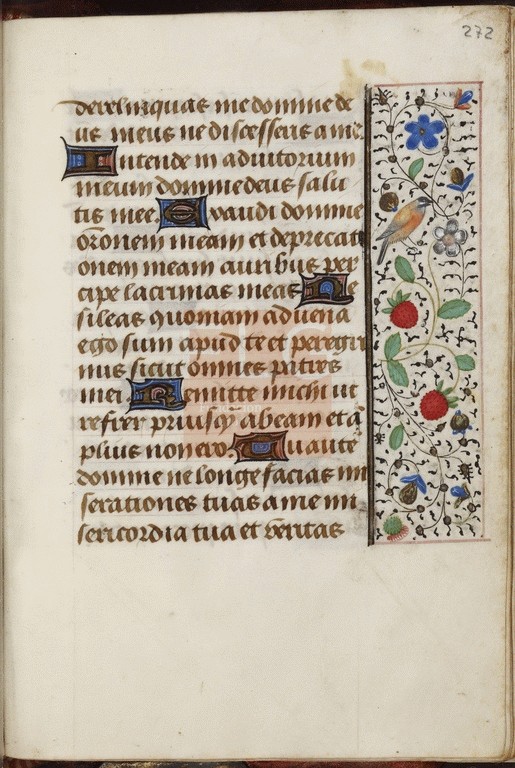 272
derelinquas me domine de
us meus ne discesseris a me
Intende in adiutorium
meum domine deus salu
tis mee. Exaudi domine
oronem meam et deprecati
onem meam auribus per
cipe lacrimas meas Ne
sileas quoniam aduena
ego sum apud te et peregri
nus sicut omnes patres
mei Remitte michi ut
refrer priusq̄ abeam et ā
plius non ero. Tu autē
domine ne longe facias mi
serationes tuas a me mi
sericordia tua et veritas